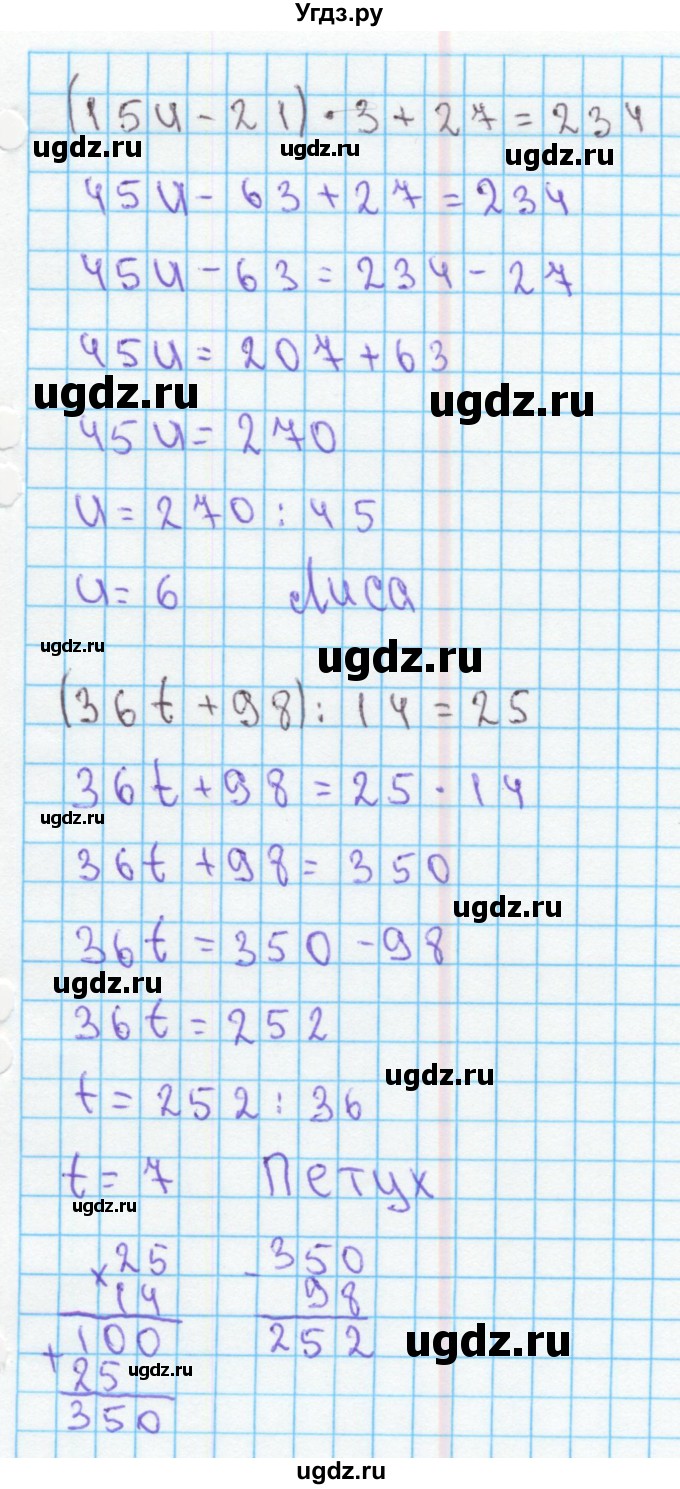 Угдз.ру
(15u - 21) · 3 + 27 = 234
ugdz.ru ugdz.ru ugdz.ru
45u - 63 + 27 = 234
45u - 63 = 234 - 27
45u = 207 + 63
ugdz.ru ugdz.ru
45u = 270
u = 270 : 45
u = 6 Лиса
ugdz.ru ugdz.ru
(36t + 98) : 14 = 25
36t + 98 = 25 · 14
ugdz.ru
36t + 98 = 350
ugdz.ru
36t = 350 - 98
ugdz.ru
36t = 252
ugdz.ru
t = 252 : 36
t = 7 Петух
ugdz.ru
× 25 - 350
14 98
+ 100 252
ugdz.ru
25 ugdz.ru
350
ugdz.ru